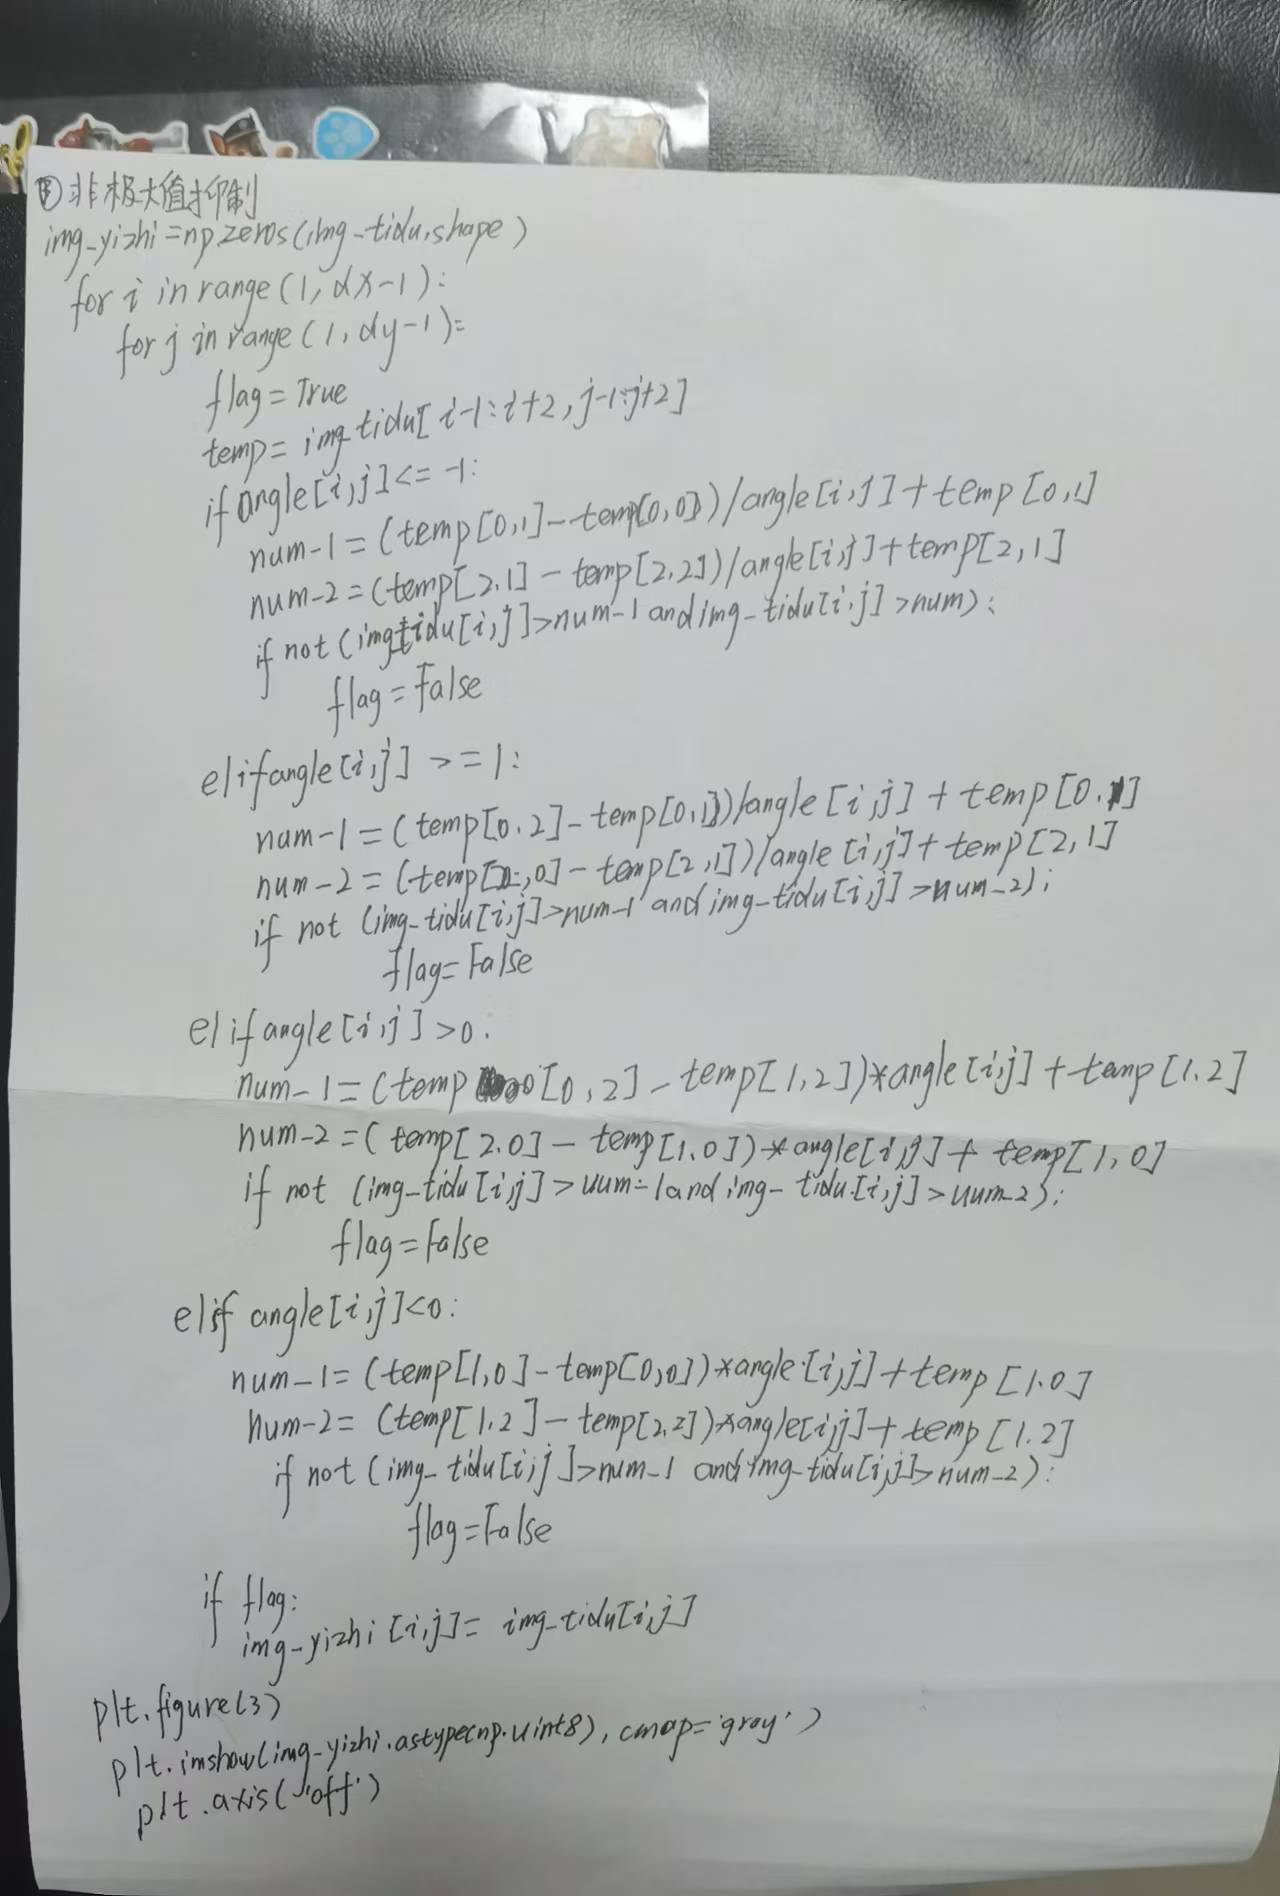 ③非极大值抑制
img-yizhi=np.zeros(img-tidu.shape)
for i in range(1,dx-1):
for j in range(1,dy-1):
flag=True
temp=img-tidu[i-1:i+2,j-1:j+2]
if angle[i,j]<=-1:
num-1=(temp[0,1]-temp[0,0])/angle[i,j]+temp[0,1]
num-2=(temp[2.1]-temp[2,2])/angle[i,j]+temp[2,1]
if not(img-tidu[i,j]>num-1 and img-tidu[i,j]>num):
flag=False
elifangle[i,j]>=1:
num-1=(temp[0.2]-temp[0,1])/angle[i,j]+temp[0.1]
num-2=(temp[2,0]-temp[2,1])/angle[i,j]+temp[2,1]
if not (img-tidu[i,j]>num-1 and img-tidu[i,j]>num-2):
flag=False
elifangle[i,j]>0:
num-1=(temp[0,2]-temp[1,2])*angle[i,j]+temp[1.2]
num-2=(temp[2.0]-temp[1.0])*angle[i,j]+temp[1,0]
if not (img-tidu[i,j]>num-1and img-tidu[i,j]>num-2):
flag=False
elif angle[i,j]<0:
num-1=(temp[1,0]-temp[0,0])*angle[i,j]+temp[1.0]
num-2=(temp[1.2]-temp[2,2])*angle[i,j]+temp[1.2]
if not (img-tidu[i,j]>num-1 and img-tidu[i,j]>num-2):
flag=False
if flag:
img-yizhi[i,j]=img-tidu[i,j]
plt.figure(3)
plt.imshow(img-yizhi.astype(np.uint8),cmap='gray')
plt.axis('off')